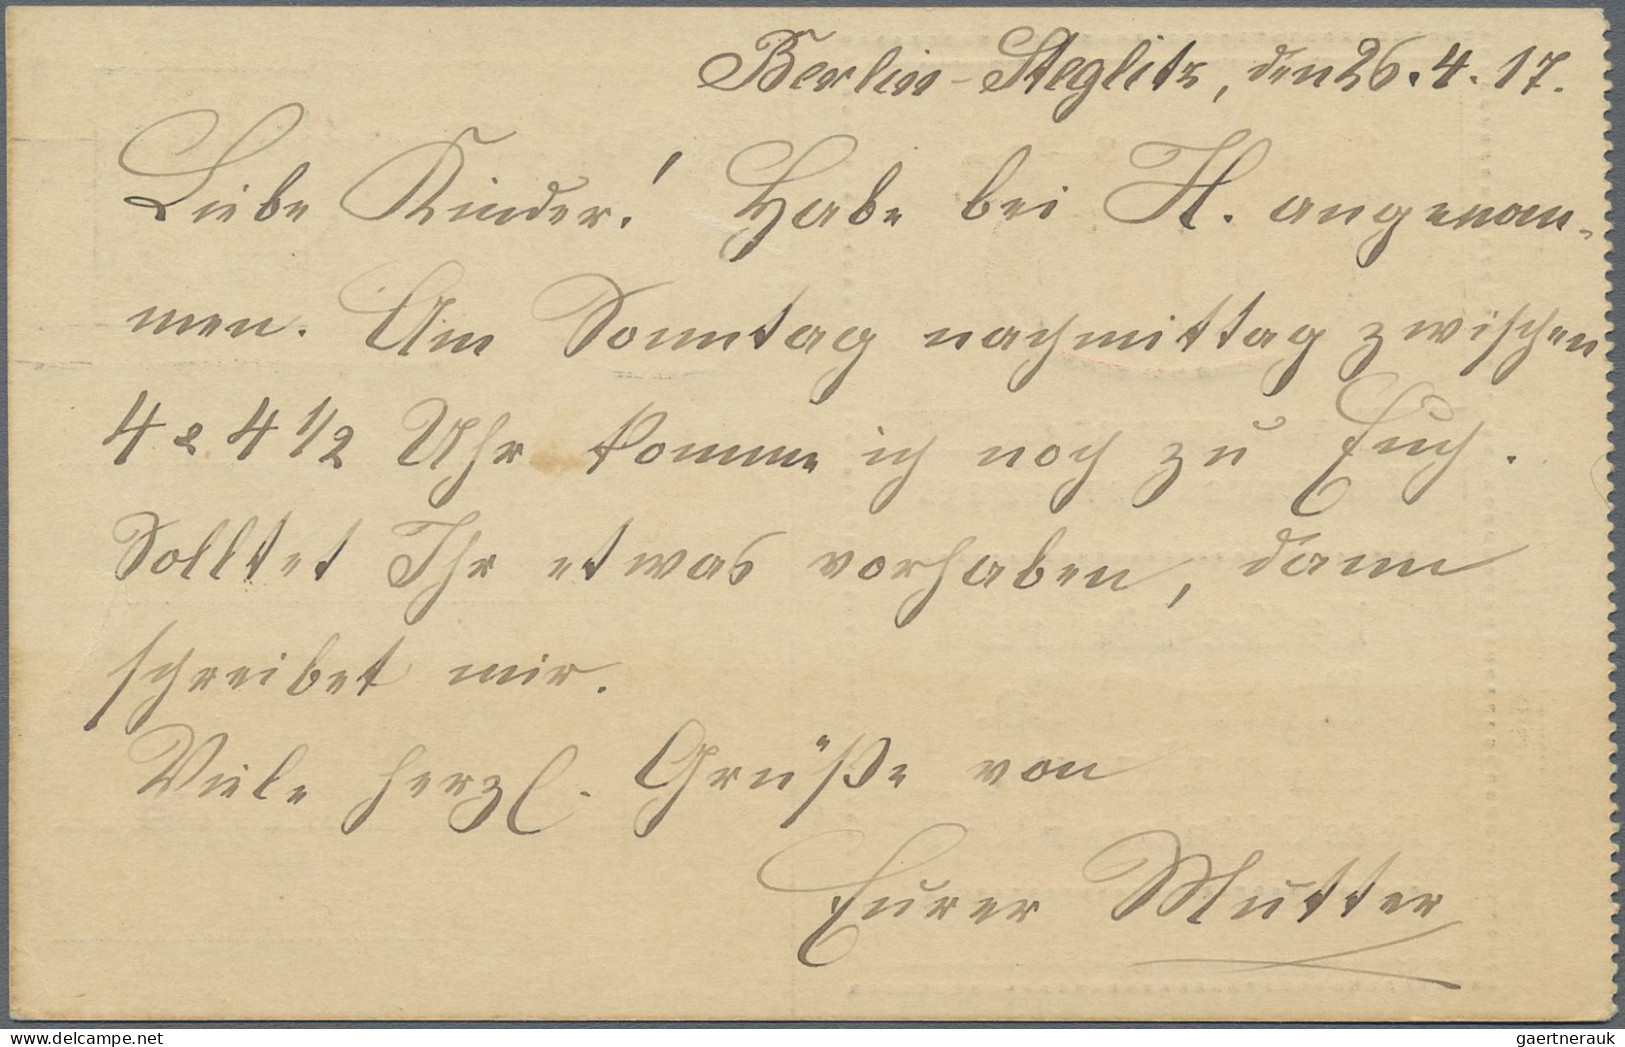 Berlin-Steglitz, den 26.4.17.
Liebe Kinder! Habe bei H. angenom-
men. Am Sonntag nachmittag zwischen
4 & 4 1/2 Uhr komme ich noch zu Euch.
Solltet Ihr etwas vorhaben, dann
schreibet mir.
Viele herzl. Grüße von
Eurer Mutter
www.delcampe.net
gaertnerauk